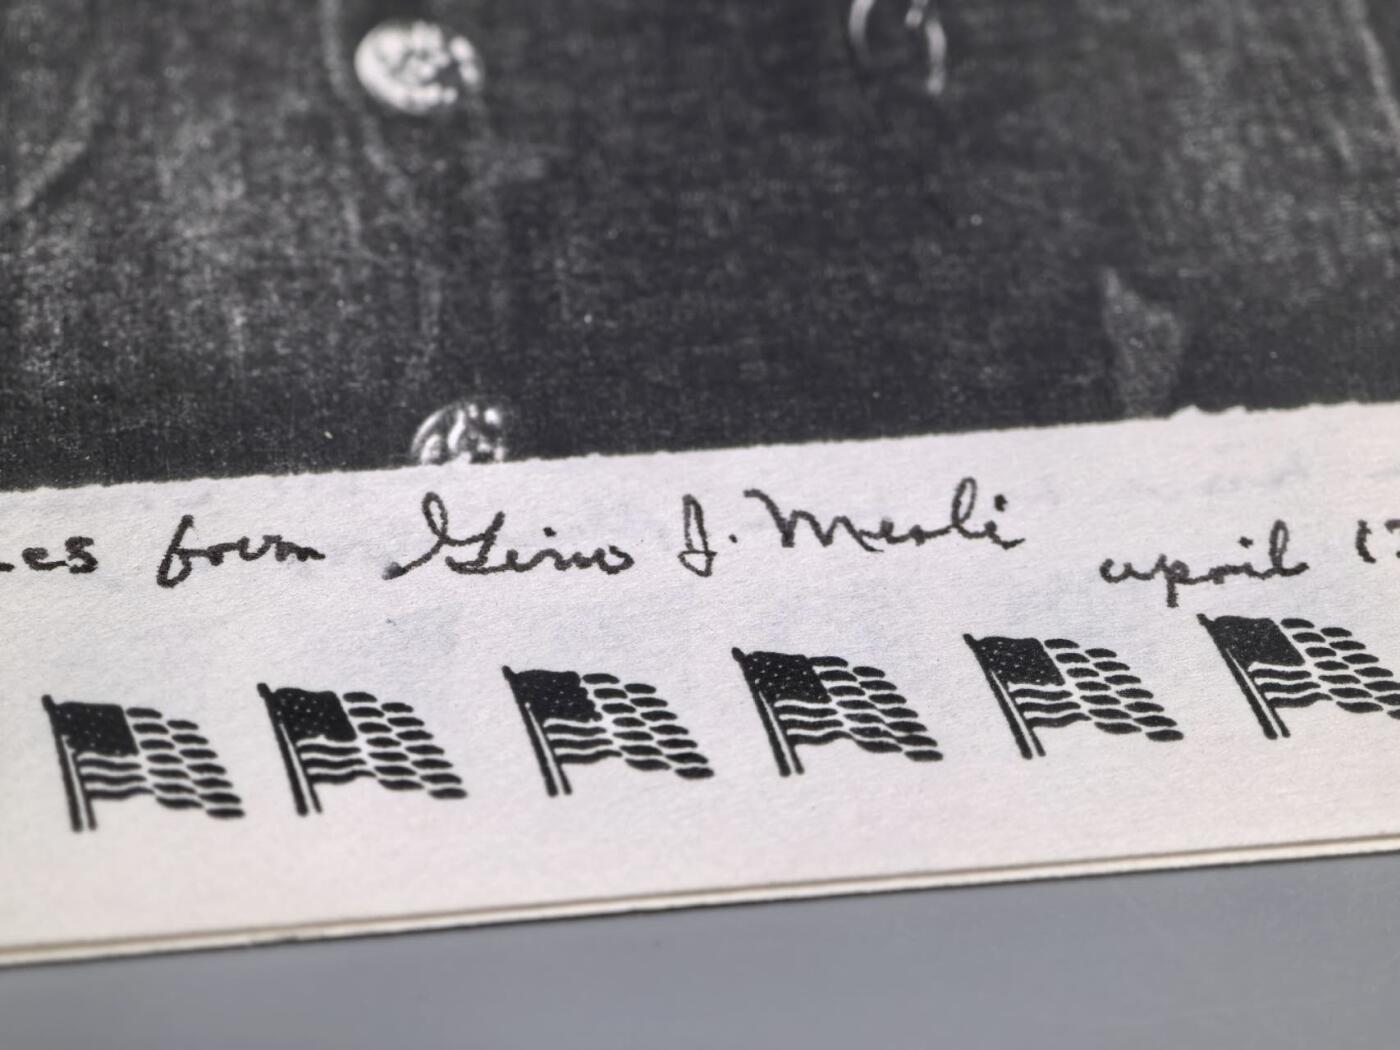 from Gino J. Merli april